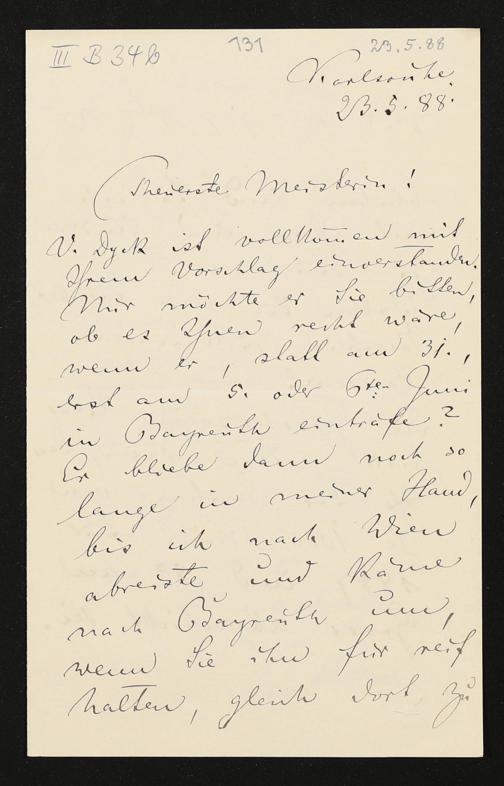 III B 34b
131
23.5.88
Karlsruhe.
23.5.88.
Theuerste Meisterin!
V. Dyck ist vollkom̄en mit
Ihrem Vorschlag einverstanden.
Nur möchte er Sie bitten,
ob es Ihnen recht wäre,
wenn er, statt am 31.,
erst am 5. oder 6ten Juni
in Bayreuth einträfe?
Er bliebe dann noch so
lange in meiner Hand,
bis ich nach Wien
abreiste und käme
nach Bayreuth um,
wenn Sie ihn für reif
halten, gleich dort zu